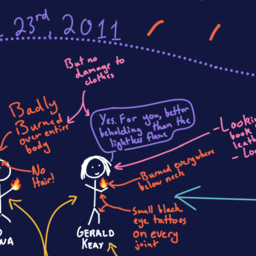 23rd, 2011
But no
damage to
clothes
Badly
Burned
over entire
body
Yes. For you, better
beholding than the
lightless flame
No
Hair!
Burned everywhere
below neck
Small black
eye tattoos
on every
joint
GERALD
KEAY
NA